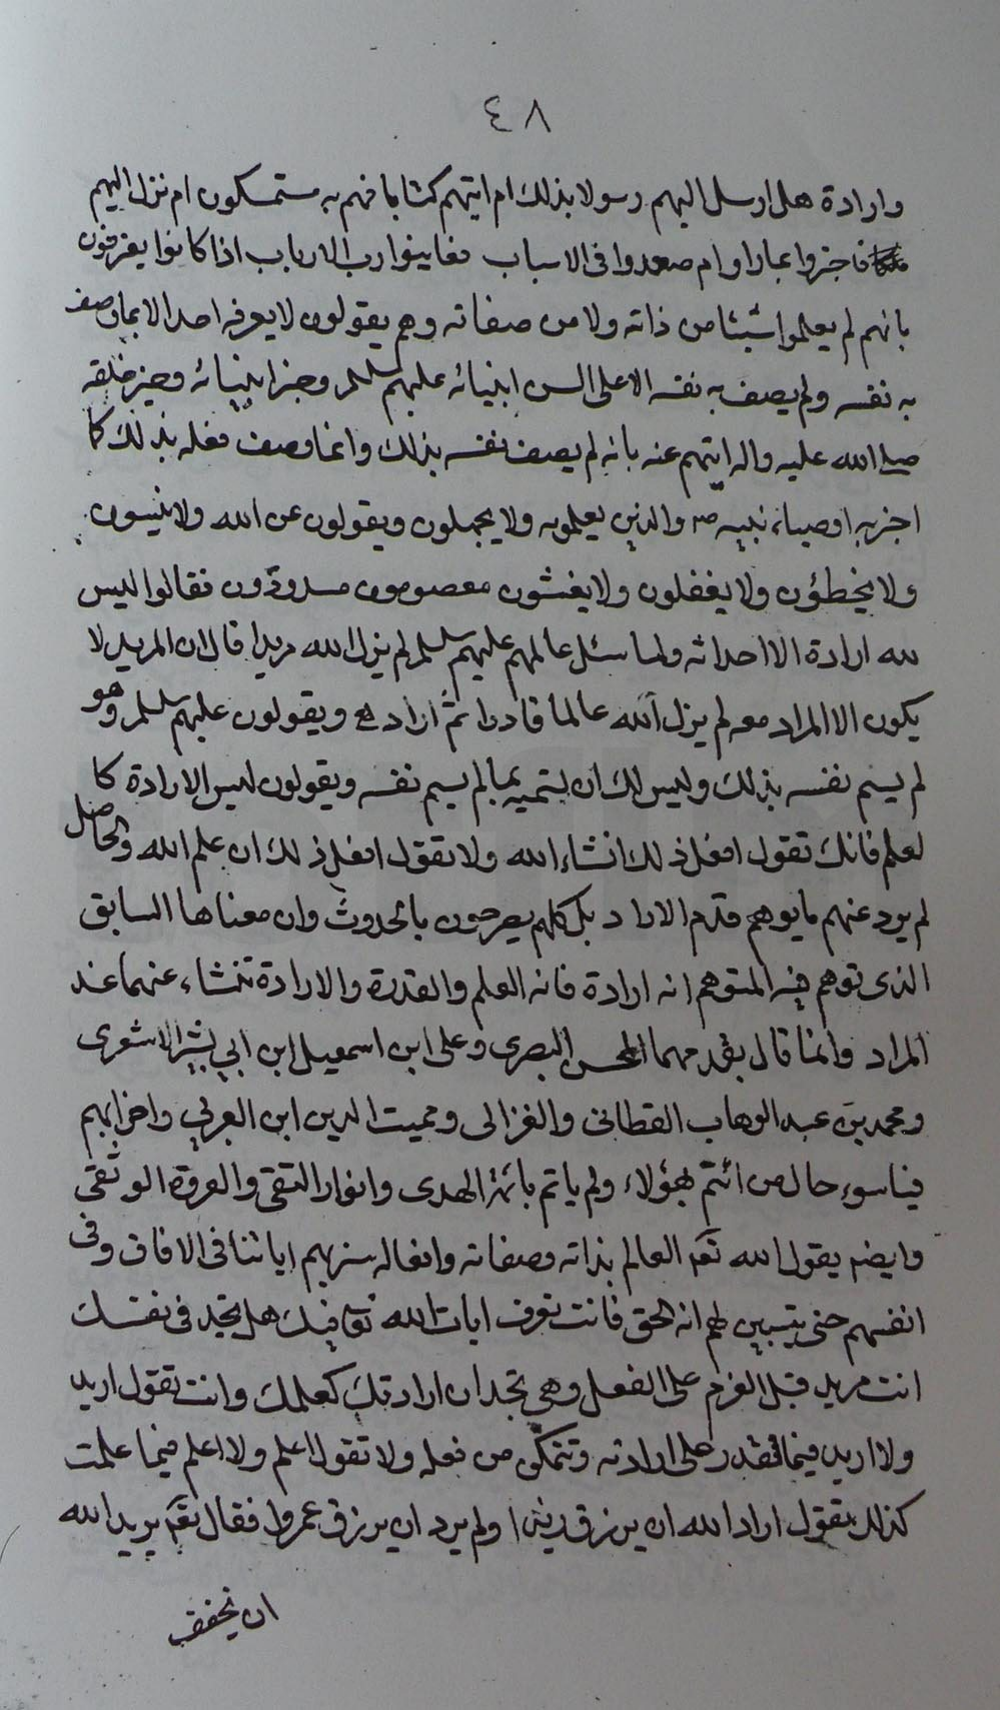 ٤٨
وارادة هل ارسل اليهم رسولا بذلك ام اتيهم كتابا فهم به مستمسكون ام نزل اليهم
فاخبروا عبارا وام صعدوا فى الاسباب فعاينوا رب الارباب اذا كانوا يعترفون
بانهم لم يعلموا شيئا من ذاته ولا من صفاته وهم يقولون لا يعرفه احد الا بما وصف
به نفسه ولم يصف به نفسه الا على السن انبيائه عليهم السلام وخبر انبيائه وخير خلقه
صلى الله عليه واله ايتهم عنه بانه لم يصف نفسه بذلك وانما وصف فعله بذلك كا
اخبر به اوصياء نبيه ص والذين يعلمون ولا يجهلون ويقولون عن الله ولا ينسون
ولا يخطؤن ولا يغفلون ولا يغشون معصومون مسددون فقالوا ليس
لله ارادة الا احداثه ولما سئل عالمهم عليهم السلام لم يزل الله مريدا قال ان المريد لا
يكون الا المراد معه لم يزل الله عالما قادرا ثم اراد هـ ويقولون عليهم السلام وهو
لم يسم نفسه بذلك وليس لك ان تسميه بما لم يسم نفسه ويقولون ليس الارادة كا
لعلم فانك تقول افعل ذلك انشاء الله ولا تقول افعل ذلك ان علم الله والحاصل
لم يرد عنهم ما يوهم قدم الاراد بل كلهم يصرحون بالحدوث وان معناها السابق
الذى توهم فيه المتوهم انه ارادة فانه العلم والقدرة والارادة تنشاء عنهما عند
المراد وانما قال بقدمهما الحسن البصرى وعلى ابن اسمعيل ابن ابي بشر الاشعرى
ومحمد بن عبد الوهاب القطانى والغزالى ومميت الدين ابن العربي واحزابهم
فيا سوء حال من ائتم بهؤلاء ولم ياتم بائمة الهدى وانوار التقى والعروة الوثقى
وايضا يقول الله تعه العالم بذاته وصفاته وافعاله سنريهم اياتنا فى الافاق وفى
انفسهم حتى يتبين لهم انه الحق فانت تعرف ايات الله تع فيك هل تجد فى نفسك
انت مريد قبل العزم على الفعل وهى تجد ان ارادتك كعلمك وانت تقول اريد
ولا اريد فيما تقدر على ارادته وتتمكن من فعله ولا تقول اعلم ولا اعلم فيما علمت
كذلك تقول اراد الله ان يرزق زيدا ولم يرد ان يرزق عمروا فقال تعه يريد الله
ان يخفف